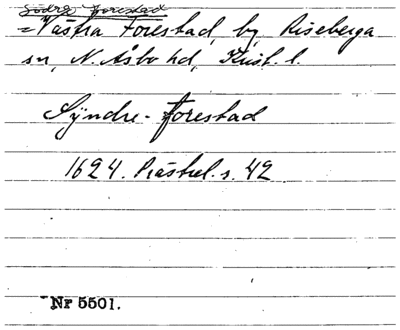 Södra Forestad
= Västra Forestad, by, Riseberga
sn, N. Åsbo hd, Krist. l.
Syndre-Forestad
1624. Prästrel. s. 42
Nr 5501.